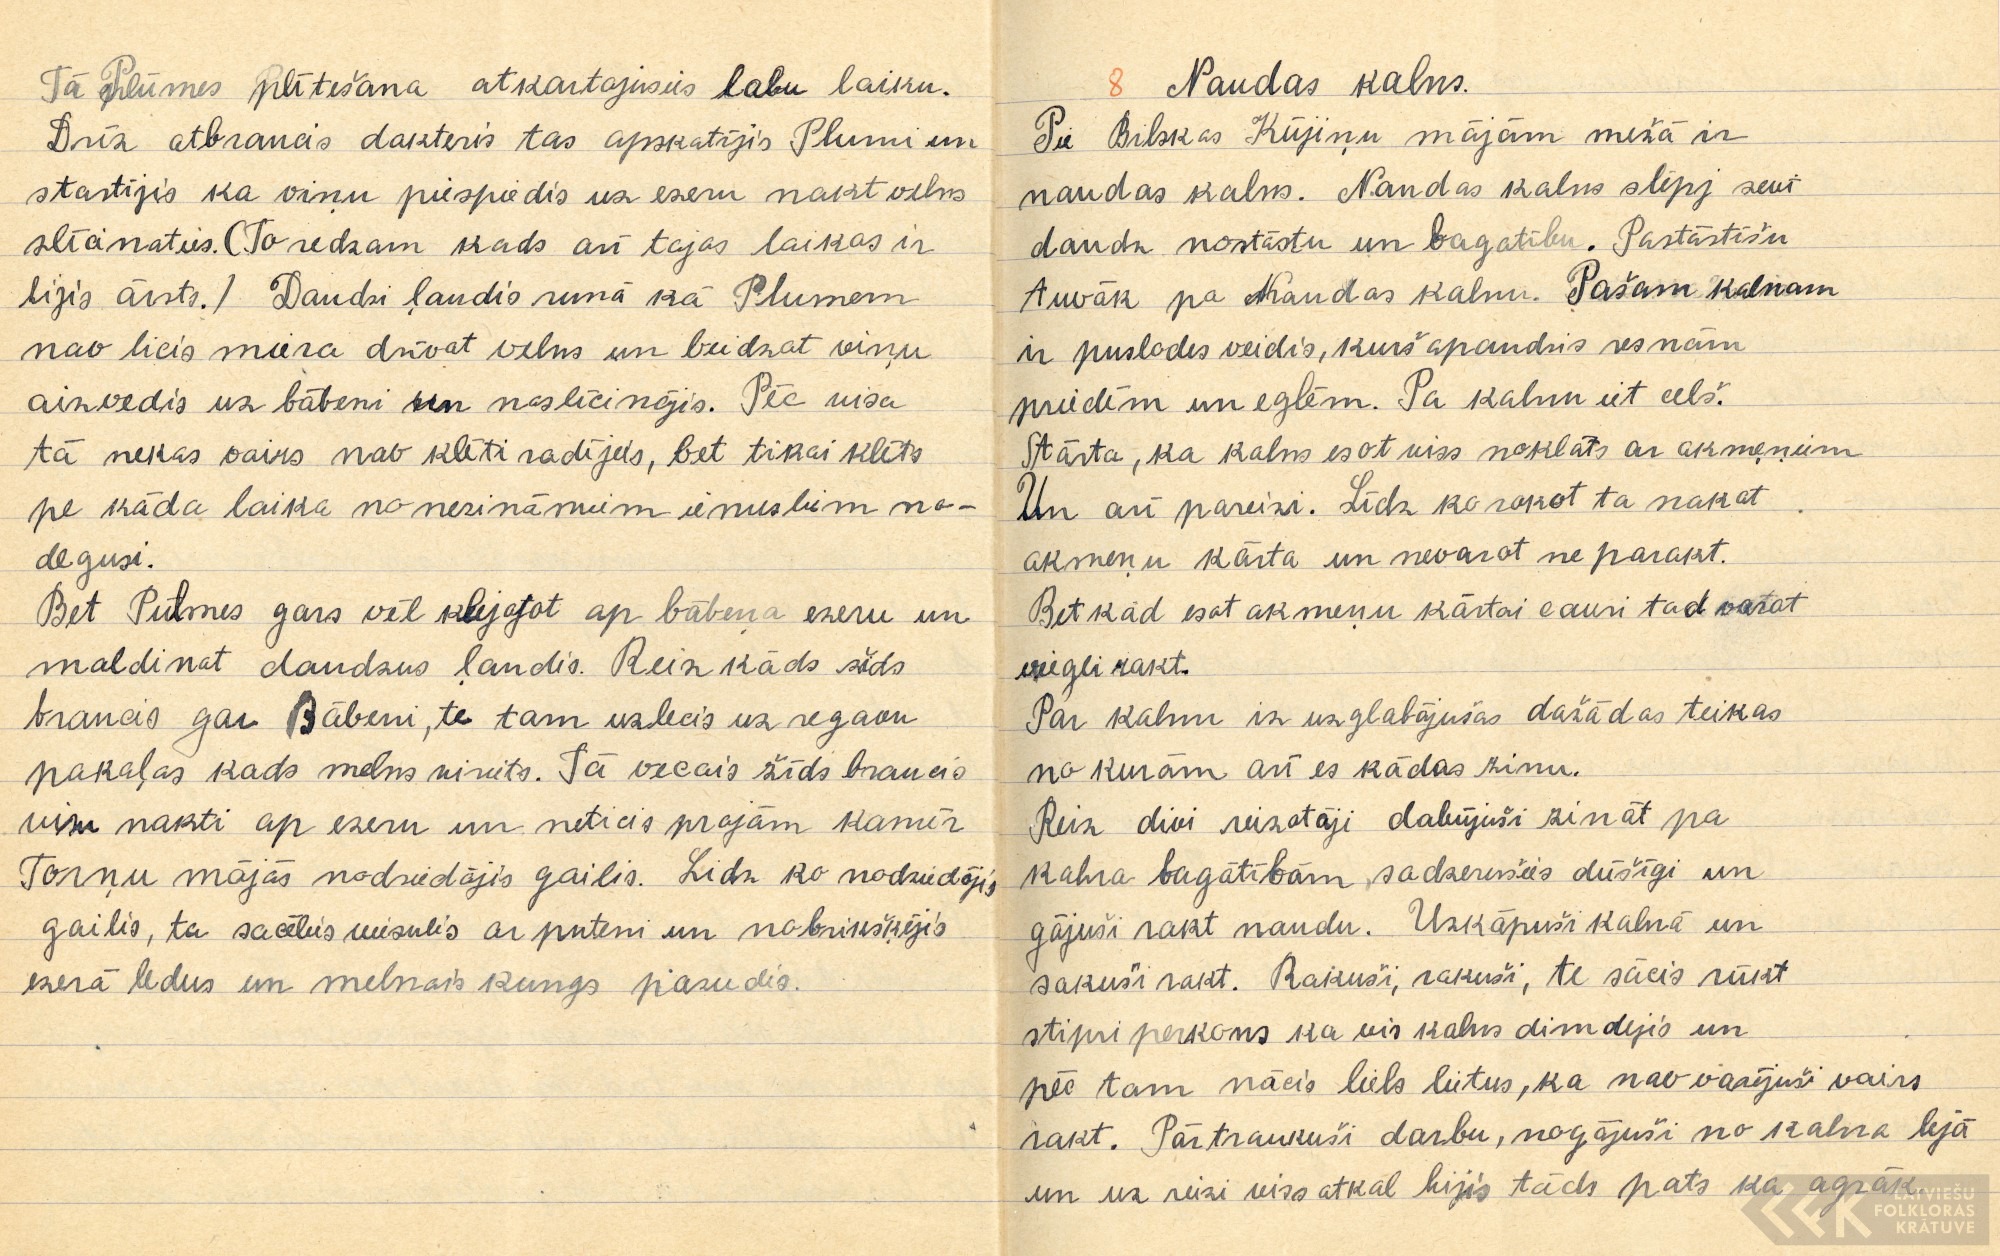 Tā Plūmes plītešana atkartajusēs labu laiku.
Drīz atbraucis dakteris tas apskatījis Plumi un
stastījis ka viņu piespiedis uz ezeru nakt velns
slīcinaties. (To redzam kads arī tajas laikas ir
bijis ārsts.) Daudzi ļaudis runā kā Plumem
nav licis miera dzīvat velns un beidzat viņu
aizvedis uz bābeni un naslīcinājis. Pēc visa
tā nekas vairs nav klēti radījēs, bet tikai klēts
pe kāda laika no nezināmiem iemesliem no-
degusi.
Bet Pulmes gars vēl klejajot ap bābeņa ezeru un
maldinat daudzus ļaudis. Reiz kāds žīds
braucis gar Bābeni, te tam uzlecis uz regavu
pakaļas kads melns virēts. Tā vecais žīds braucis
visu nakti ap ezeru un neticis prajām kamēr
Torņu mājās nodziedājis gailis. Lidz ko nodziedājis
gailis, ta sacēlies viesulis ar puteni un nobrikšķējis
ezerā ledus un melnais kungs pazudis.
8 Naudas kalns.
Pie Bilskas Kūjiņu mājām mežā ir
naudas kalns. Naudas kalns slēpj sevī
daudz nostāstu un bagatību. Pastāstīšu
tuvāk pa Naudas kalnu. Pašam kalnam
ir puslodes veidis, kurš apaudzis resnām
priedēm un eglēm. Pa kalnu iet ceļš.
Stāsta, ka kalns esot viss noklāts ar akmeņiem
Un arī pareizi. Līdz ko rokot ta nakot
akmeņu kārta un nevarot ne parakt.
Bet kād esat akmeņu kārtai cauri tad varot
viegli rakt.
Par kalnu iz uzglabājušas dažādas teikas
no kurām arī es kādas zinu.
Reiz divi reizotāji dabūjuši zināt pa
kalna bagātībām sadzerušies dūšīgi un
gājuši rakt naudu. Uzkāpuši kalnā un
sakuši rakt. Rakuši, rakuši, te sācis rūkt
stipri perkons ka vis kalns dimdejis un
pēc tam nācis liels lietus, ka nav varējuši vairs
rakt. Pārtraukuši darbu, nogājuši no kalna lejā
un uz reizi viss atkal bijis tāds pats ka agrāk.
LATVIEŠU
FOLKLORAS
KRĀTUVE